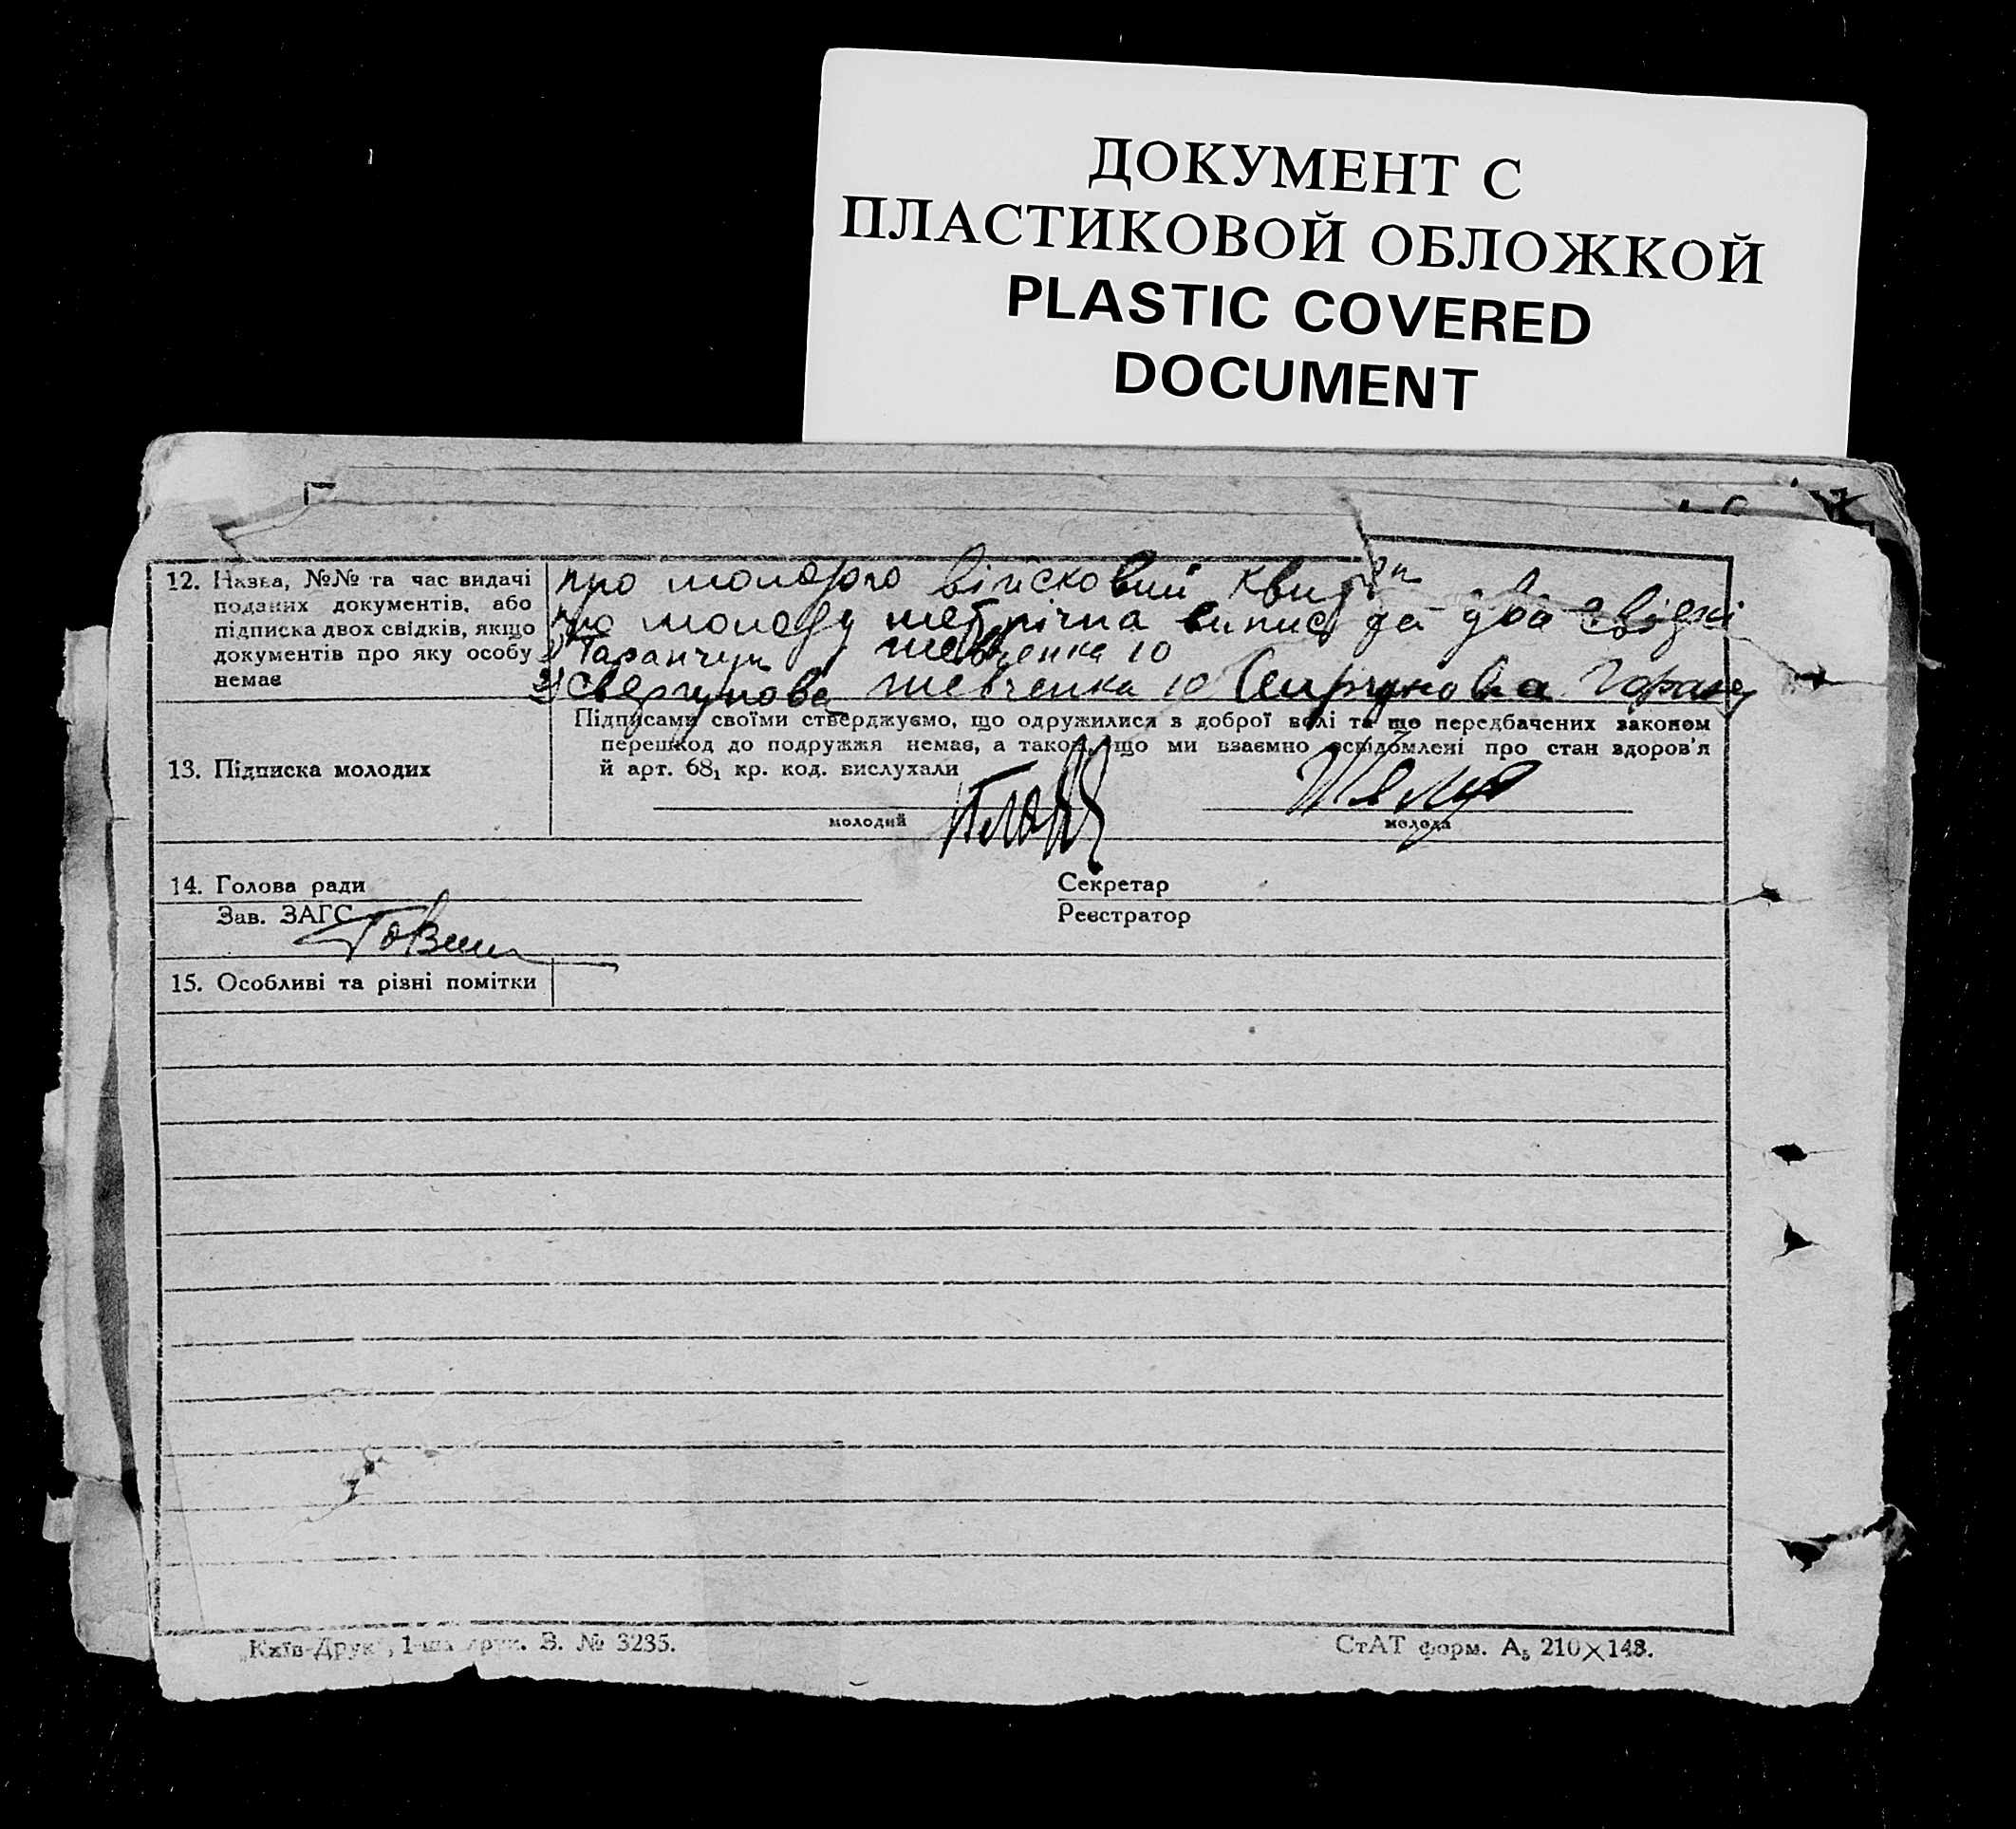 ДОКУМЕНТ С
ПЛАСТИКОВОЙ ОБЛОЖКОЙ
PLASTIC COVERED
DOCUMENT
12. Назва, №№ та час видачі
поданих документів, або
підписка двох свідків, якщо
документів про яку особу
немає
про молодого військовий квиток
про молоду метрична випис да два свідкі
1) Таранчук Шевченка 10
2) Свергунова Шевченка 10
13. Підписка молодих
Підписами своїми стверджуємо, що одружилися з доброї волі та що передбачених законом
перешкод до подружжя немає, а також, що ми взаємно освідомлені про стан здоров'я
й арт. 68₁ кр. код. вислухали
молодий молода
14. Голова ради Секретар
Зав. ЗАГС Реєстратор
15. Особливі та різні помітки
„Київ-Друк", 1-ша друк. З. № 3235. СтАТ форм. А₅ 210×148.